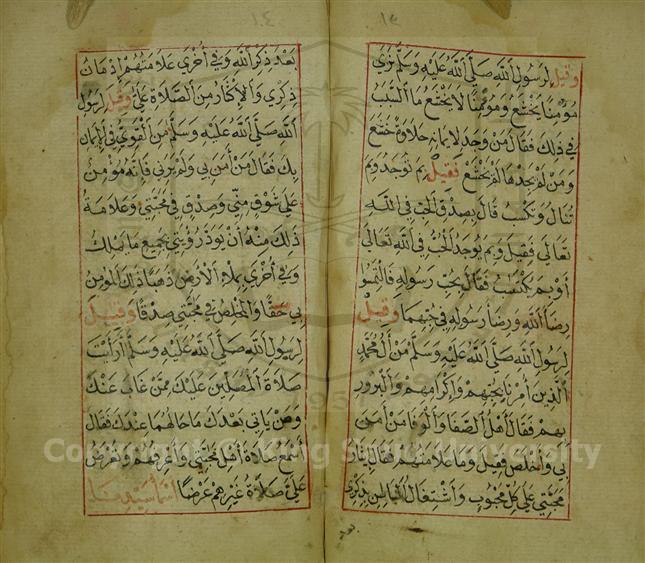 ١٣
وقيل لرسول الله صلى الله عليه وسلم نرى
مؤمنا يخشع ومؤمنا لا يخشع ما السبب
في ذلك فقال من وجد لايمانه حلاوة خشع
ومن لم يجدها لم يخشع فقيل بم توجد وبم
تنال وتكتسب قال بصدق الحب في الله
تعالى فقيل وبم يوجد الحب في الله تعالى
أو بم يكتسب فقال بحب رسوله فالتمسوا
رضاء الله ورضاء رسوله في حبهما وقيل
لرسول الله صلى الله عليه وسلم من آل محمد
الذين أمرنا بحبهم وإكرامهم والبرور
بهم فقال أهل الصفا والوفا من آمن
بي وأخلص فقيل وما علامتهم فقال إيثار
محبتي على كل محبوب واشتغال الباطن بذكري
بعد
١٤
بعد ذكر الله وفي أخرى علامتهم إدمان
ذكري والإكثار من الصلاة علي وقيل لرسول
الله صلى الله عليه وسلم من القوي في الإيمان
بك فقال من آمن بي ولم يرني فإنه مؤمن بي
على شوق مني وصدق في محبتي وعلامة
ذلك منه أن يود رؤيتي بجميع ما يملك
وفي أخرى بملء الأرض ذهبا ذلك المؤمن
بي حقا والمخلص في محبتي صدقا وقيل
لرسول الله صلى الله عليه وسلم أرأيت
صلاة المصلين عليك ممن غاب عنك
ومن يأتي بعدك ما حالهما عندك فقال
أسمع صلاة أهل محبتي وأعرفهم وتعرض
علي صلاة غيرهم عرضا أسماء سيدنا
Copyright © King Saud University